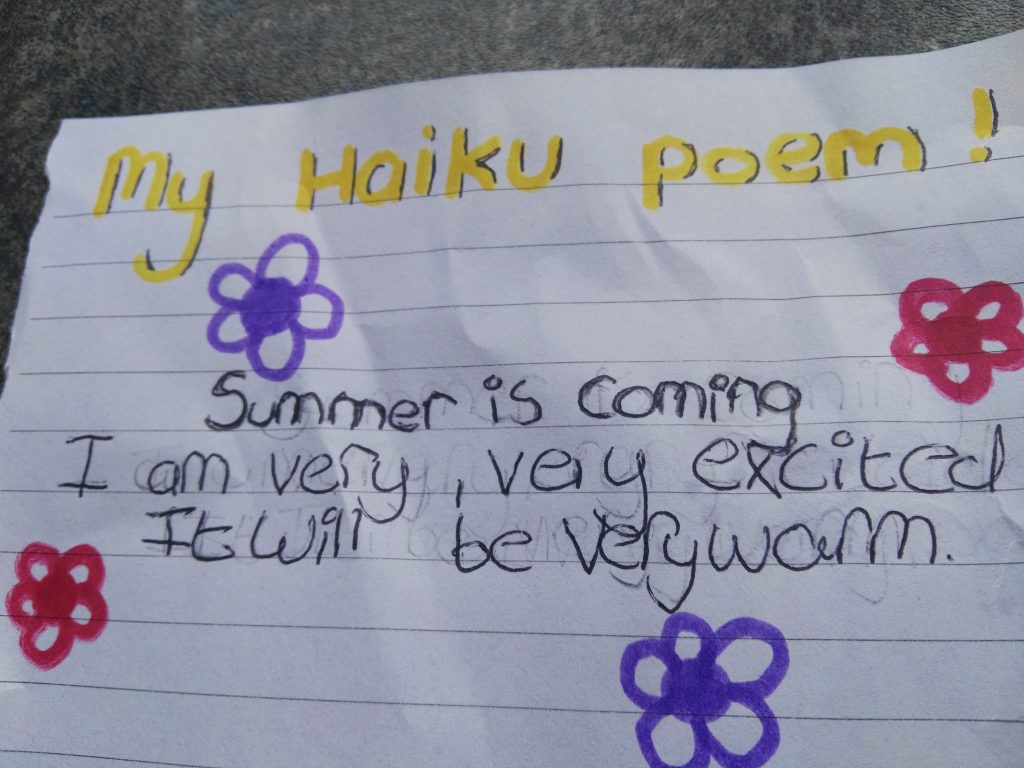 My Haiku poem!
Summer is coming
I am very, very excited
It will be very warm.